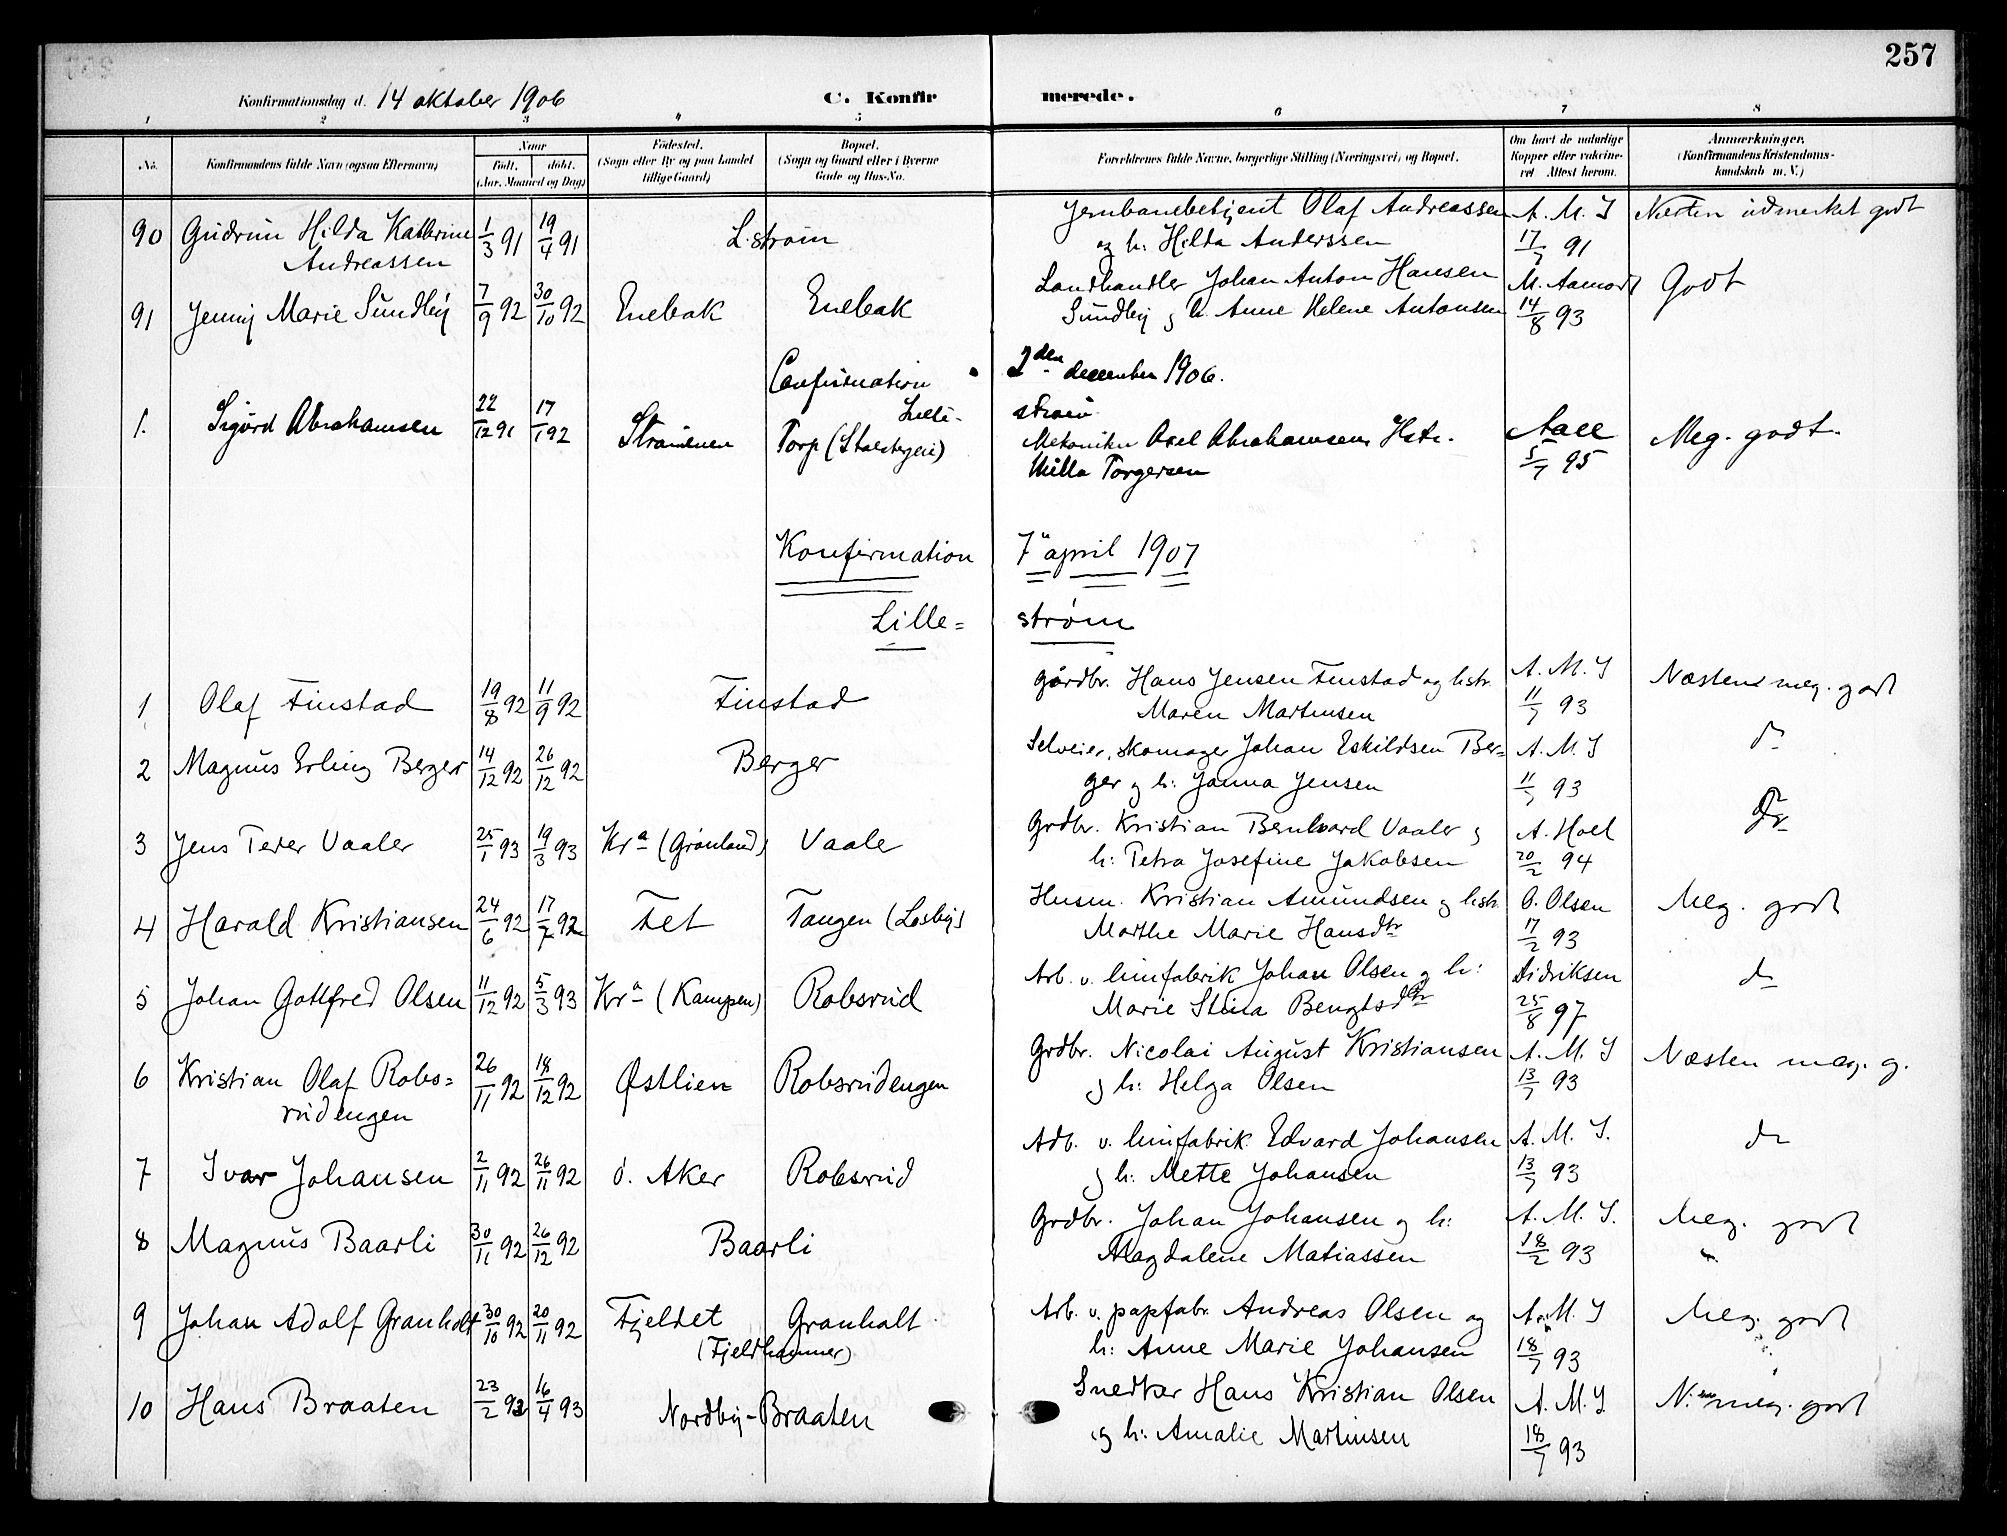 257
Konfirmationsdag d. 14 oktober 1906 C. Konfir merede.
1 2 3 4 5 6 7 8
No. Konfirmandens fulde Navn (ogsaa Efternavn) Naar født. døbt. (Aar, Maaned og Dag) Fødested. (Sogn eller By og paa Landet tillige Gaard) Bopæl. (Sogn og Gaard eller i Byerne Gade og Hus-No. Forældrenes fulde Navne, borgerlige Stilling (Næringsvei) og Bopæl. Om havt de naturlige Kopper eller vaccineret. Attest herom. Anmærkninger. (Konfirmandens Kristendomskundskab m. V.)
90 Gudrun Hilda Kathrine 1/3 91 19/4 91 L.strøm Jernbanebetjent Olaf Andreassen A. M. S Næsten udmerket godt
Andreassen og h: Hilda Anderssen 17/7 91
91 Jenny Marie Sundby 7/9 92 30/10 92 Enebak Enebak Landhandler Johan Anton Hansen M. Aamodt Godt
Sundby g h. Anne Helene Antonsen 14/8 93
Confirmation 2den december 1906.
Lille- strøm
1. Sigurd Abrahamsen 22/12 91 17/1 92 Strømmen Torp Mekaniker Axel Abrahamsen Hstr. Aall Meg. godt
Milla Torgersen 5/7 95
Konfirmation 7 april 1907
Lille= strøm
1 Olaf Finstad 19/8 92 11/9 92 Finstad gårdbr. Hans Jensen Finstad og hstr. A. M. S Næsten meg. godt
Maren Martinsen 11/7 93
2 Magnus Erling Berger 14/12 92 26/12 92 Berger Selveier, skomager Johan Eskildsen Ber= A. M. S do
ger g h: Janna Jensen 11/7 93
3 Jens Peder Vaaler 25/1 93 19/3 93 Kra (Grønland) Vaale Grdbr. Kristian Bernhard Vaaler g A. Holl do
h: Petra Josefine Jakobsen 20/2 94
4 Harald Kristiansen 24/6 92 17/7 92 Fet Tangen (Losby) Husm. Kristian Amundsen g hstr. O. Olsen Meg. godt
Marthe Marie Hansdtr 17/2 93
5 Johan Gottfred Olsen 11/12 92 5/3 93 Kra (Kampen) Robsrud Arb. v. limfabrik Johan Olsen g h: Didriksen do
Marie Stina Bengtsdtr 25/8 97
6 Kristian Olaf Robs= 26/11 92 18/12 92 Østlien Robsrudengen Grdbr. Nicolai August Kristiansen A. M. S Næsten meg. g.
rudengen g h: Helga Olsen 13/7 93
7 Ivar Johansen 2/11 92 26/11 92 ö. Aker Robsrud Arb. v. limfabrik Edvard Johansen A. M. S. do
g h: Mette Johansen 13/7 93
8 Magnus Baarli 30/11 92 26/12 92 Baarli Grdbr. Johan Johansen g h: A. M. S. Meg. godt
Magdalene Matiassen 18/2 93
9 Johan Adolf Granholt 30/10 92 20/11 92 Fjeldet Granholt Arb. v. papfabr. Andreas Olsen og A. M. S Meg. godt
(Fjeldhammer) h: Anne Marie Johansen 18/7 93
10 Hans Braaten 23/2 93 16/4 93 Nordby-Braaten Snedker Hans Kristian Olsen A. M. S N.ten meg. godt
g h: Amalie Martinsen 18/7 93